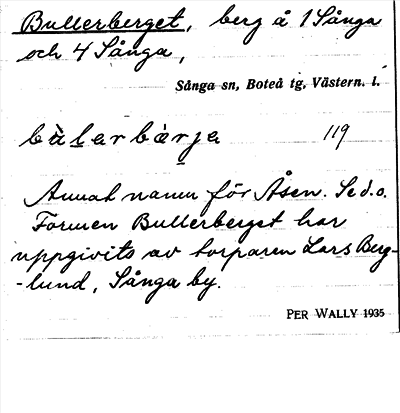 Bullerberget, berg å 1 Sånga
och 4 Sånga,
Sånga sn, Boteå tg, Västern. l.
bùlarbàrja 119
Annat namn för Åsen. Se d.o.
Formen Bullerberget har
uppgivits av torparen Lars Berg-
-lund, Sånga by.
PER WALLY 1935